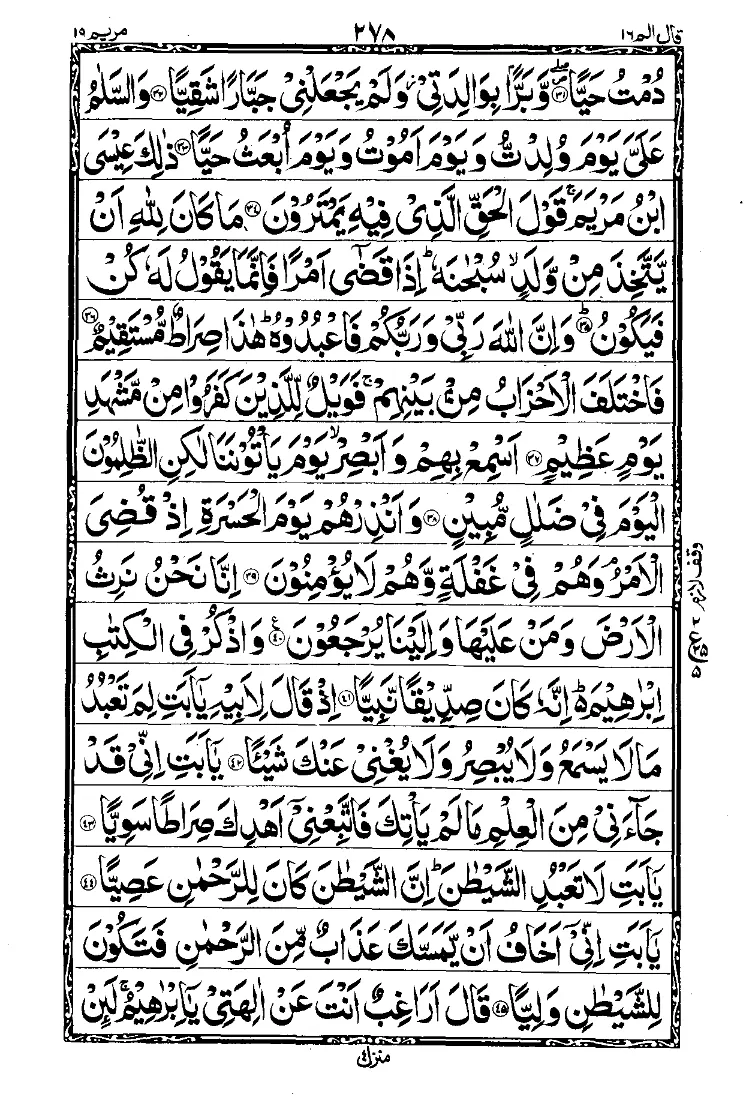 قال الم ١٦ ٢٧٨ مريم ١٩
دُمْتُ حَيًّا ۝٣١ وَّبَرًّۢا بِوَالِدَتِیْ ؗ وَلَمْ یَجْعَلْنِیْ جَبَّارًا شَقِیًّا ۝٣٢ وَالسَّلٰمُ
عَلَیَّ یَوْمَ وُلِدْتُّ وَیَوْمَ اَمُوْتُ وَیَوْمَ اُبْعَثُ حَیًّا ۝٣٣ ذٰلِكَ عِیْسَی
ابْنُ مَرْیَمَ ۚ قَوْلَ الْحَقِّ الَّذِیْ فِیْهِ یَمْتَرُوْنَ ۝٣٤ مَا كَانَ لِلّٰهِ اَنْ
یَّتَّخِذَ مِنْ وَّلَدٍ ۙ سُبْحٰنَهٗ ؕ اِذَا قَضٰۤی اَمْرًا فَاِنَّمَا یَقُوْلُ لَهٗ كُنْ
فَیَكُوْنُ ۝٣٥ؕ وَاِنَّ اللّٰهَ رَبِّیْ وَرَبُّكُمْ فَاعْبُدُوْهُ ؕ هٰذَا صِرَاطٌ مُّسْتَقِیْمٌ ۝٣٦
فَاخْتَلَفَ الْاَحْزَابُ مِنْۢ بَیْنِهِمْ ۚ فَوَیْلٌ لِّلَّذِیْنَ كَفَرُوْا مِنْ مَّشْهَدِ
یَوْمٍ عَظِیْمٍ ۝٣٧ اَسْمِعْ بِهِمْ وَاَبْصِرْ ۙ یَوْمَ یَاْتُوْنَنَا لٰكِنِ الظّٰلِمُوْنَ
الْیَوْمَ فِیْ ضَلٰلٍ مُّبِیْنٍ ۝٣٨ وَاَنْذِرْهُمْ یَوْمَ الْحَسْرَةِ اِذْ قُضِیَ
الْاَمْرُ ۘ وَهُمْ فِیْ غَفْلَةٍ وَّهُمْ لَا یُؤْمِنُوْنَ ۝٣٩ اِنَّا نَحْنُ نَرِثُ
الْاَرْضَ وَمَنْ عَلَیْهَا وَاِلَیْنَا یُرْجَعُوْنَ ۝٤٠ۧ وَاذْكُرْ فِی الْكِتٰبِ
اِبْرٰهِیْمَ ؕ۬ اِنَّهٗ كَانَ صِدِّیْقًا نَّبِیًّا ۝٤١ اِذْ قَالَ لِاَبِیْهِ یٰۤاَبَتِ لِمَ تَعْبُدُ
مَا لَا یَسْمَعُ وَلَا یُبْصِرُ وَلَا یُغْنِیْ عَنْكَ شَیْئًا ۝٤٢ یٰۤاَبَتِ اِنِّیْ قَدْ
جَآءَنِیْ مِنَ الْعِلْمِ مَا لَمْ یَاْتِكَ فَاتَّبِعْنِیْۤ اَهْدِكَ صِرَاطًا سَوِیًّا ۝٤٣
یٰۤاَبَتِ لَا تَعْبُدِ الشَّیْطٰنَ ؕ اِنَّ الشَّیْطٰنَ كَانَ لِلرَّحْمٰنِ عَصِیًّا ۝٤٤
یٰۤاَبَتِ اِنِّیْۤ اَخَافُ اَنْ یَّمَسَّكَ عَذَابٌ مِّنَ الرَّحْمٰنِ فَتَكُوْنَ
لِلشَّیْطٰنِ وَلِیًّا ۝٤٥ قَالَ اَرَاغِبٌ اَنْتَ عَنْ اٰلِهَتِیْ یٰۤاِبْرٰهِیْمُ ۚ لَئِنْ
منزل ٤
وقف لازم